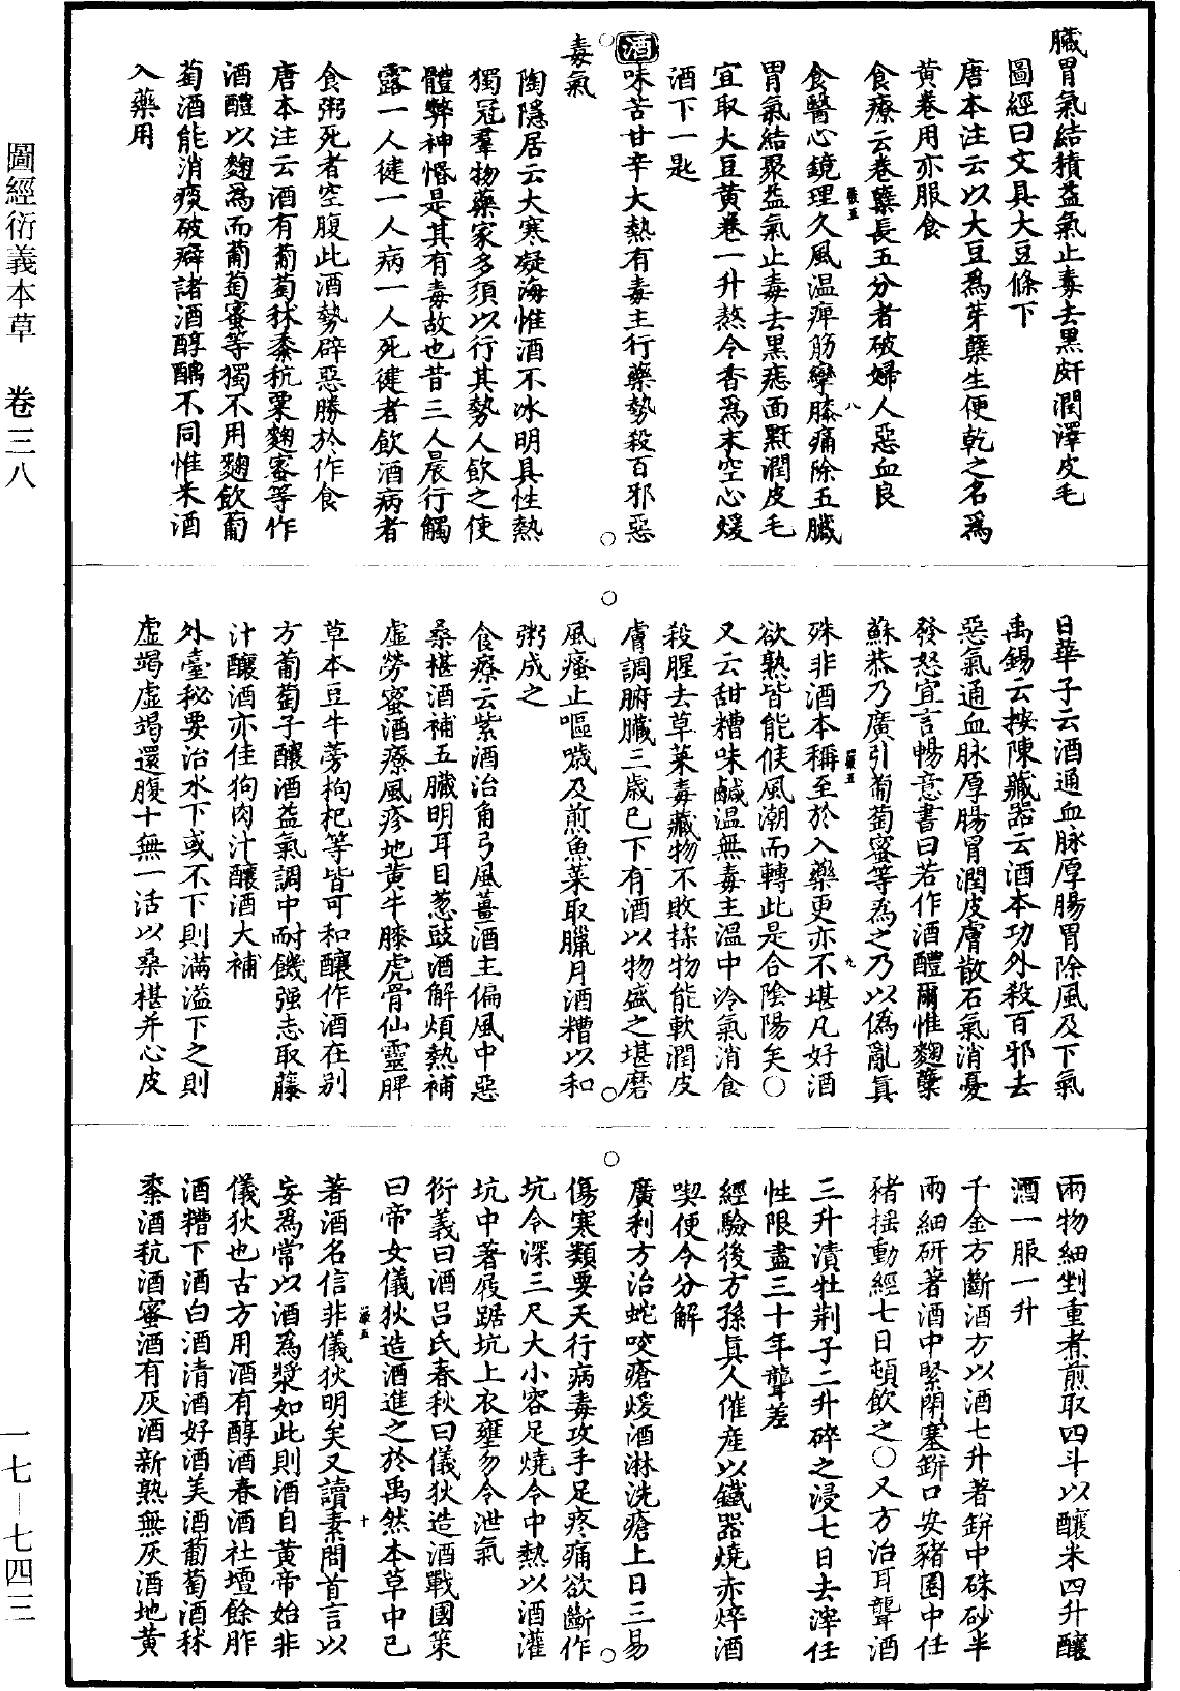 臟胃氣結積益氣止毒去黑皯潤澤皮毛
圖經曰文具大豆條下
唐本注云以大豆爲芽櫱生便乾之名爲
黃卷用亦服食
食療云卷櫱長五分者破婦人惡血良
食醫心鏡理久風温痺筋攣膝痛除五臟
胃氣結聚益氣止毒去黑痣面䵟潤皮毛
宜取大豆黃卷一升熬令香爲末空心煖
酒下一匙
酒味苦甘辛大熱有毒主行藥勢殺百邪惡
毒氣
陶隱居云大寒凝海惟酒不冰明具性熱
獨冠羣物藥家多須以行其勢人飲之使
體弊神惛是其有毒故也昔三人晨行觸
露一人健一人病一人死健者飲酒病者
食粥死者空腹此酒勢辟惡勝於作食
唐本注云酒有葡萄秫黍秔粟麴蜜等作
酒醴以麴爲而葡萄蜜等獨不用麴飲葡
萄酒能消痰破癖諸酒醇醨不同惟米酒
入藥用
日華子云酒通血脉厚腸胃除風及下氣
禹錫云按陳藏器云酒本功外殺百邪去
惡氣通血脉厚腸胃潤皮膚散石氣消憂
發怒宜言暢意書曰若作酒醴爾惟麴糵
蘇恭乃廣引葡萄蜜等爲之乃以僞亂真
殊非酒本稱至於入藥更亦不堪凡好酒
欲熟皆能候風潮而轉此是合陰陽矣○
又云甜糟味鹹温無毒主温中冷氣消食
殺腥去草菜毒藏物不敗揉物能軟潤皮
膚調腑臟三歲已下有酒以物盛之堪磨
風瘙止嘔噦及煎魚菜取臘月酒糟以和
粥成之
食療云紫酒治角弓風薑酒主偏風中惡
桑椹酒補五臟明耳目葱豉酒解煩熱補
虛勞蜜酒療風疹地黃牛膝虎骨仙靈脾
草本豆牛蒡枸杞等皆可和釀作酒在别
方葡萄子釀酒益氣調中耐饑强志取藤
汁釀酒亦佳狗肉汁釀酒大補
外臺秘要治水下或不下則滿溢下之則
虛竭虛竭還腹十無一活以桑椹并心皮
兩物細剉重煮煎取四斗以釀米四升釀
酒一服一升
千金方斷酒方以酒七升著缾中硃砂半
兩細研著酒中緊閉塞缾口安豬圈中任
豬揺動經七日頓飲之○又方治耳聾酒
三升漬牡荆子二升碎之浸七日去滓任
性限盡三十年聾差
經驗後方孫真人催産以鐵器燒赤焠酒
喫便令分解
廣利方治蛇咬瘡煖酒淋洗瘡上日三易
傷寒類要天行病毒攻手足疼痛欲斷作
坑令深三尺大小容足燒令中熱以酒灌
坑中著屐踞坑上衣壅勿令泄氣
衍義曰酒吕氏春秋曰儀狄造酒戰國策
曰帝女儀狄造酒進之於禹然本草中已
著酒名信非儀狄明矣又讀素問首言以
妄爲常以酒爲漿如此則酒自黃帝始非
儀狄也古方用酒有醇酒春酒社壇餘胙
酒糟下酒白酒清酒好酒美酒葡萄酒秫
黍酒秔酒蜜酒有灰酒新熟無灰酒地黃
圖經衍義本草　卷三八
一七—七四三